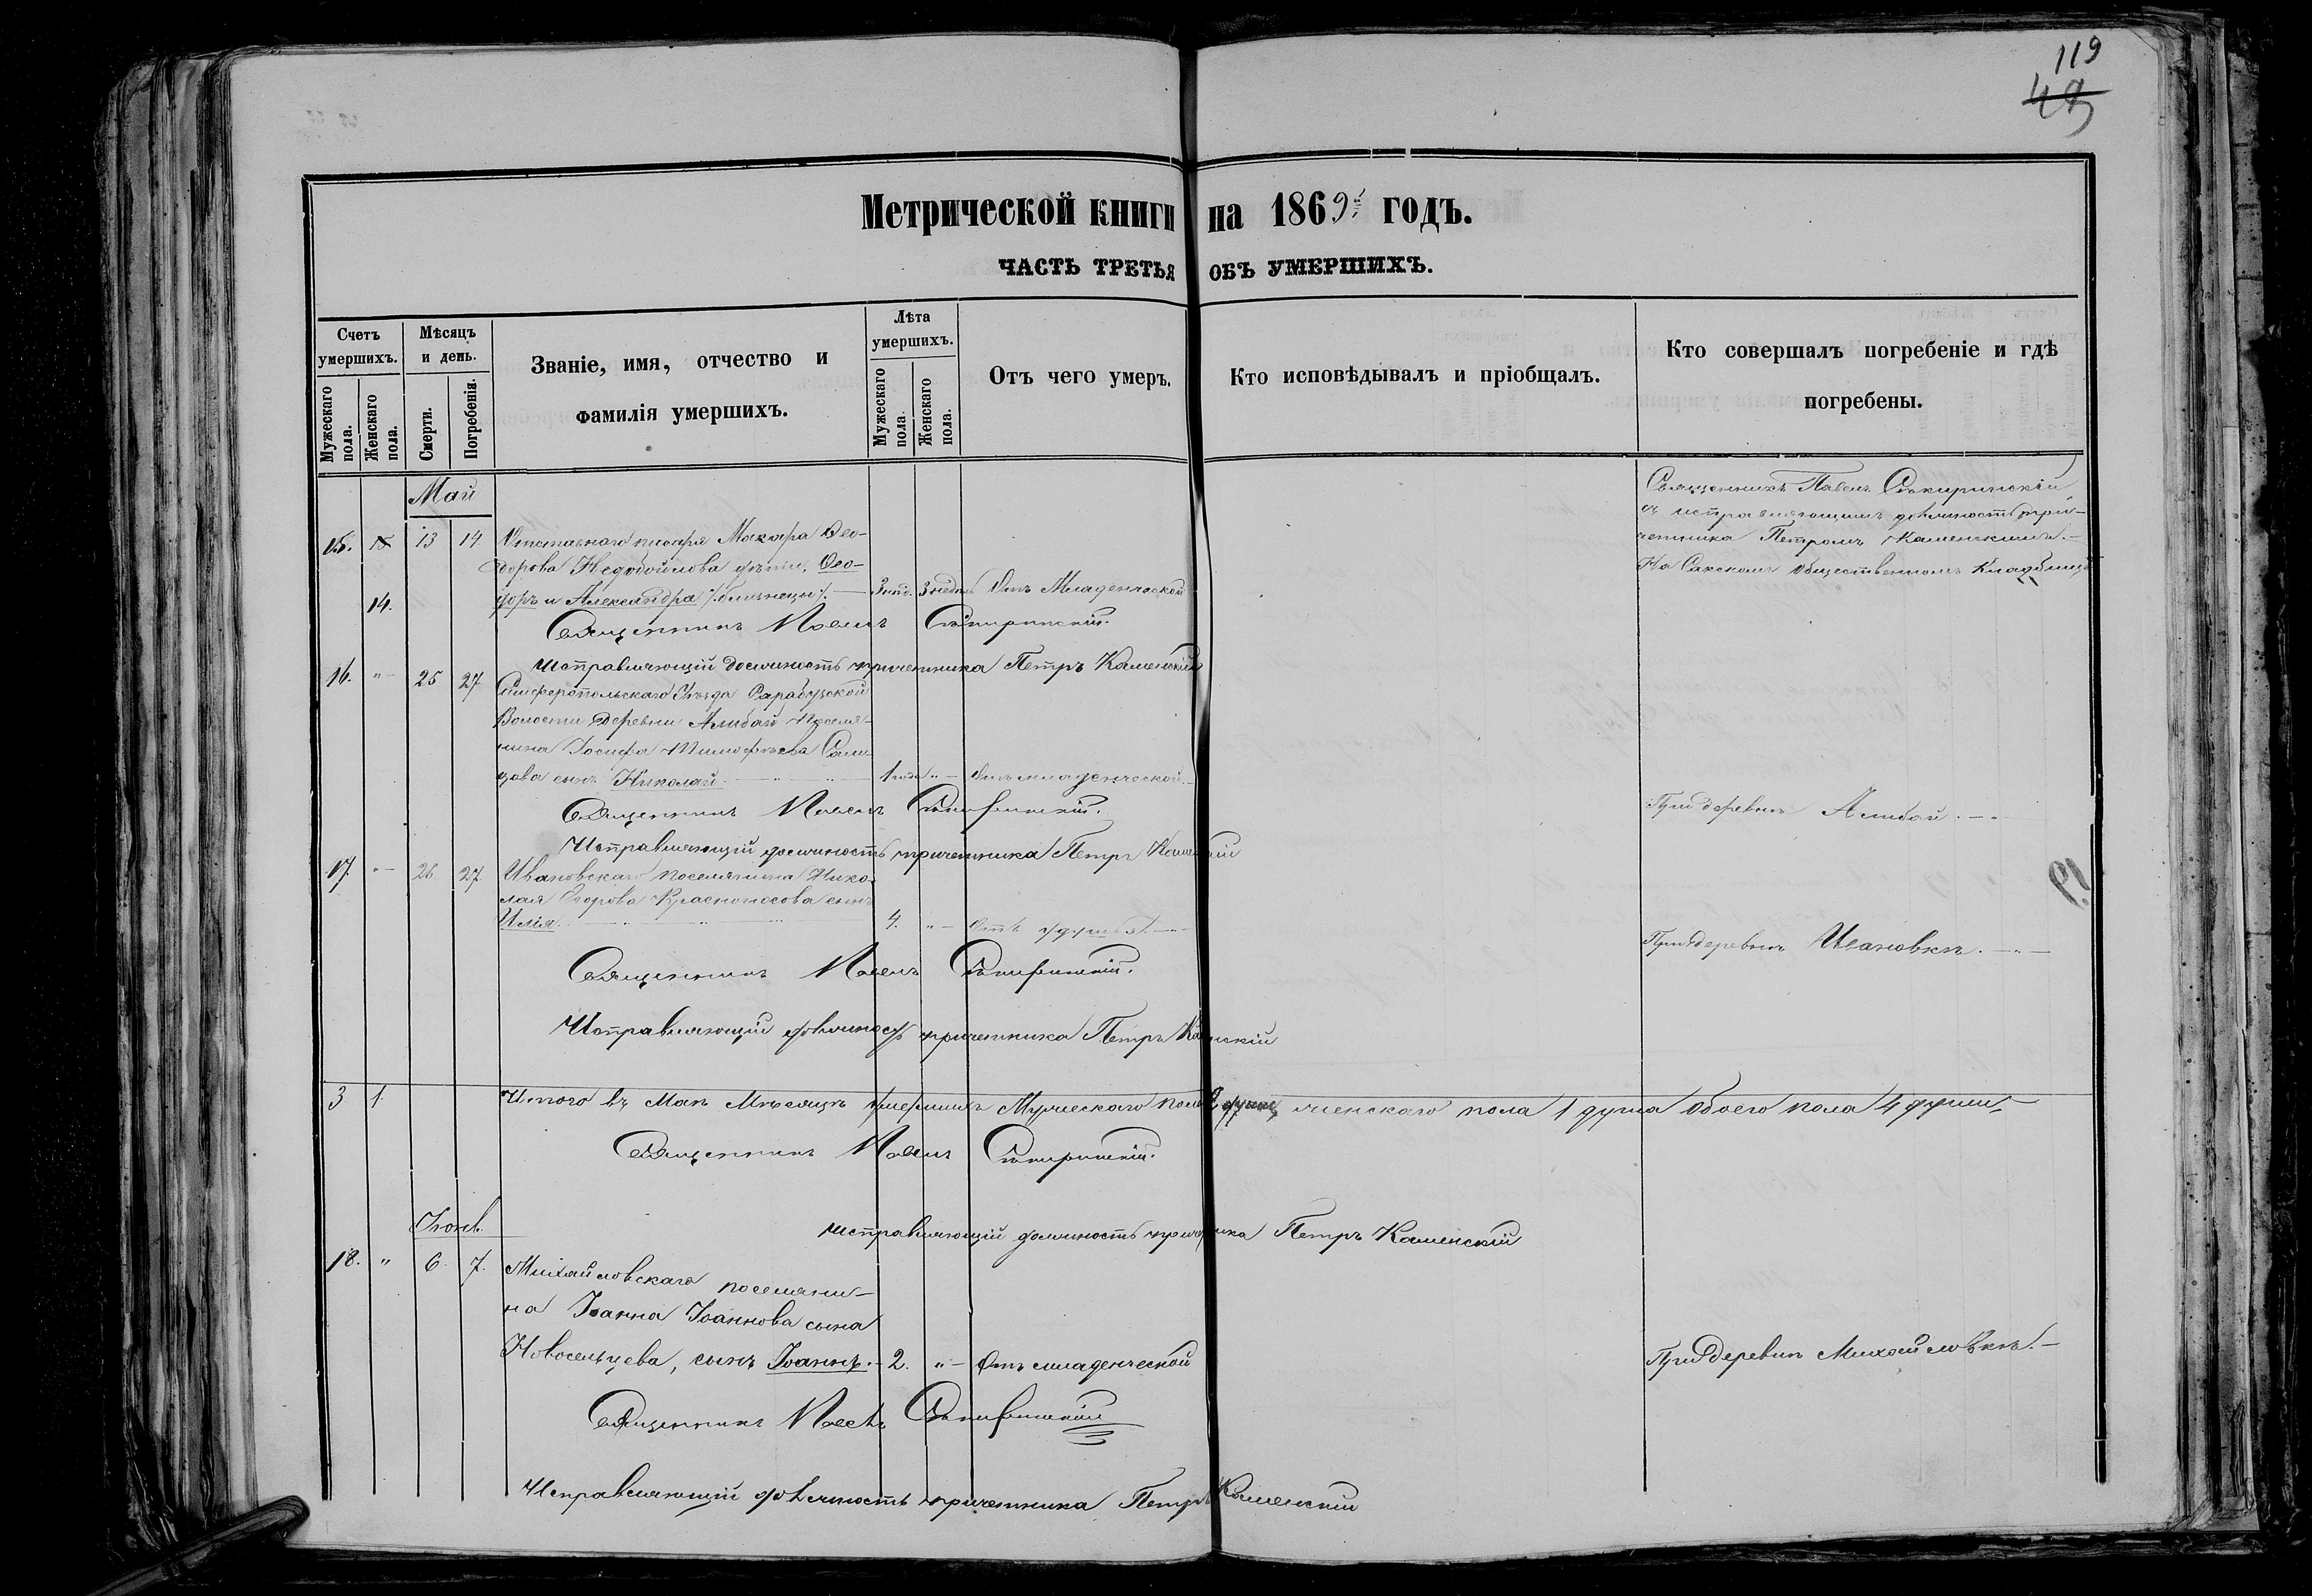 119
49
Метрической книги на 1869й годъ.
ЧАСТЬ ТРЕТЬЯ ОБЪ УМЕРШИХЪ.
Счетъ умершихъ.
Мужескаго пола.
Женскаго пола.
Мѣсяцъ и день.
Смерти.
Погребенія.
Званіе, имя, отчество и
фамилія умершихъ.
Лѣта умершихъ.
Мужескаго пола.
Женскаго пола.
Отъ чего умеръ.
Кто исповѣдывалъ и пріобщалъ.
Кто совершалъ погребеніе и гдѣ
погребены.
Май
Священникъ Павелъ
съ исправляющимъ должность при-
четника Петромъ Каменскимъ.
На Сакскомъ Общественномъ Кладбищѣ
15. 13 14 Отставнаго писаря Макара Ѳео-
дорова дѣти, Ѳео-
14. доръ и Александра /:близнецы:/. 3 нед. 3 недѣл Отъ Младенческой
Священникъ Павелъ
Исправляющій должность причетника Петръ Каменскій
16. " 25 27 Симферопольскаго Уѣзда Сарабузской
Волости деревни Алибай поселя-
нина Іосифа Тимофѣева
сынъ Николай. 1 года " Отъ младенческой.
При деревнѣ Алибай.
Священникъ Павелъ
Исправляющій должность причетника Петръ Каменскій
17. " 26 27 Ивановскаго поселянина Нико-
лая Егорова Красноносова сынъ
Илія. 4. " Отъ
При деревнѣ Ивановкѣ.
Священникъ Павелъ
Исправляющій должность причетника Петръ Каменскій
3 1. Итого въ Маѣ Мѣсяцѣ умершихъ Мужескаго пола 3 души женскаго пола 1 душа обоего пола 4 души
Священникъ Павелъ
Исправляющій должность причетника Петръ Каменскій
Іюнь
18. " 6. 7. Михайловскаго поселяни-
на Іоанна Іоаннова сына
Новосельцева, сынъ Іоаннъ. 2. " Отъ младенческой
При деревнѣ Михайловкѣ.
Священникъ Павелъ
Исправляющій должность причетника Петръ Каменскій